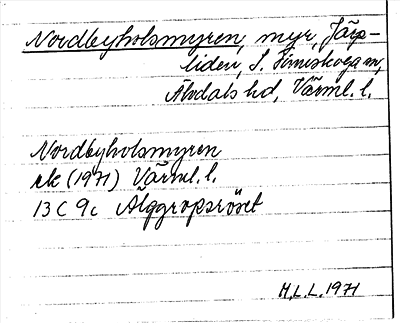 Nordbyholsmyren, myr, Järp-
liden, S. Finnskoga sn,
Älvdals hd, Värml. l.
Nordbyholsmyren
rk (1971) Värml. l.
13 C 9c Älggropsröset
H.L.L. 1971